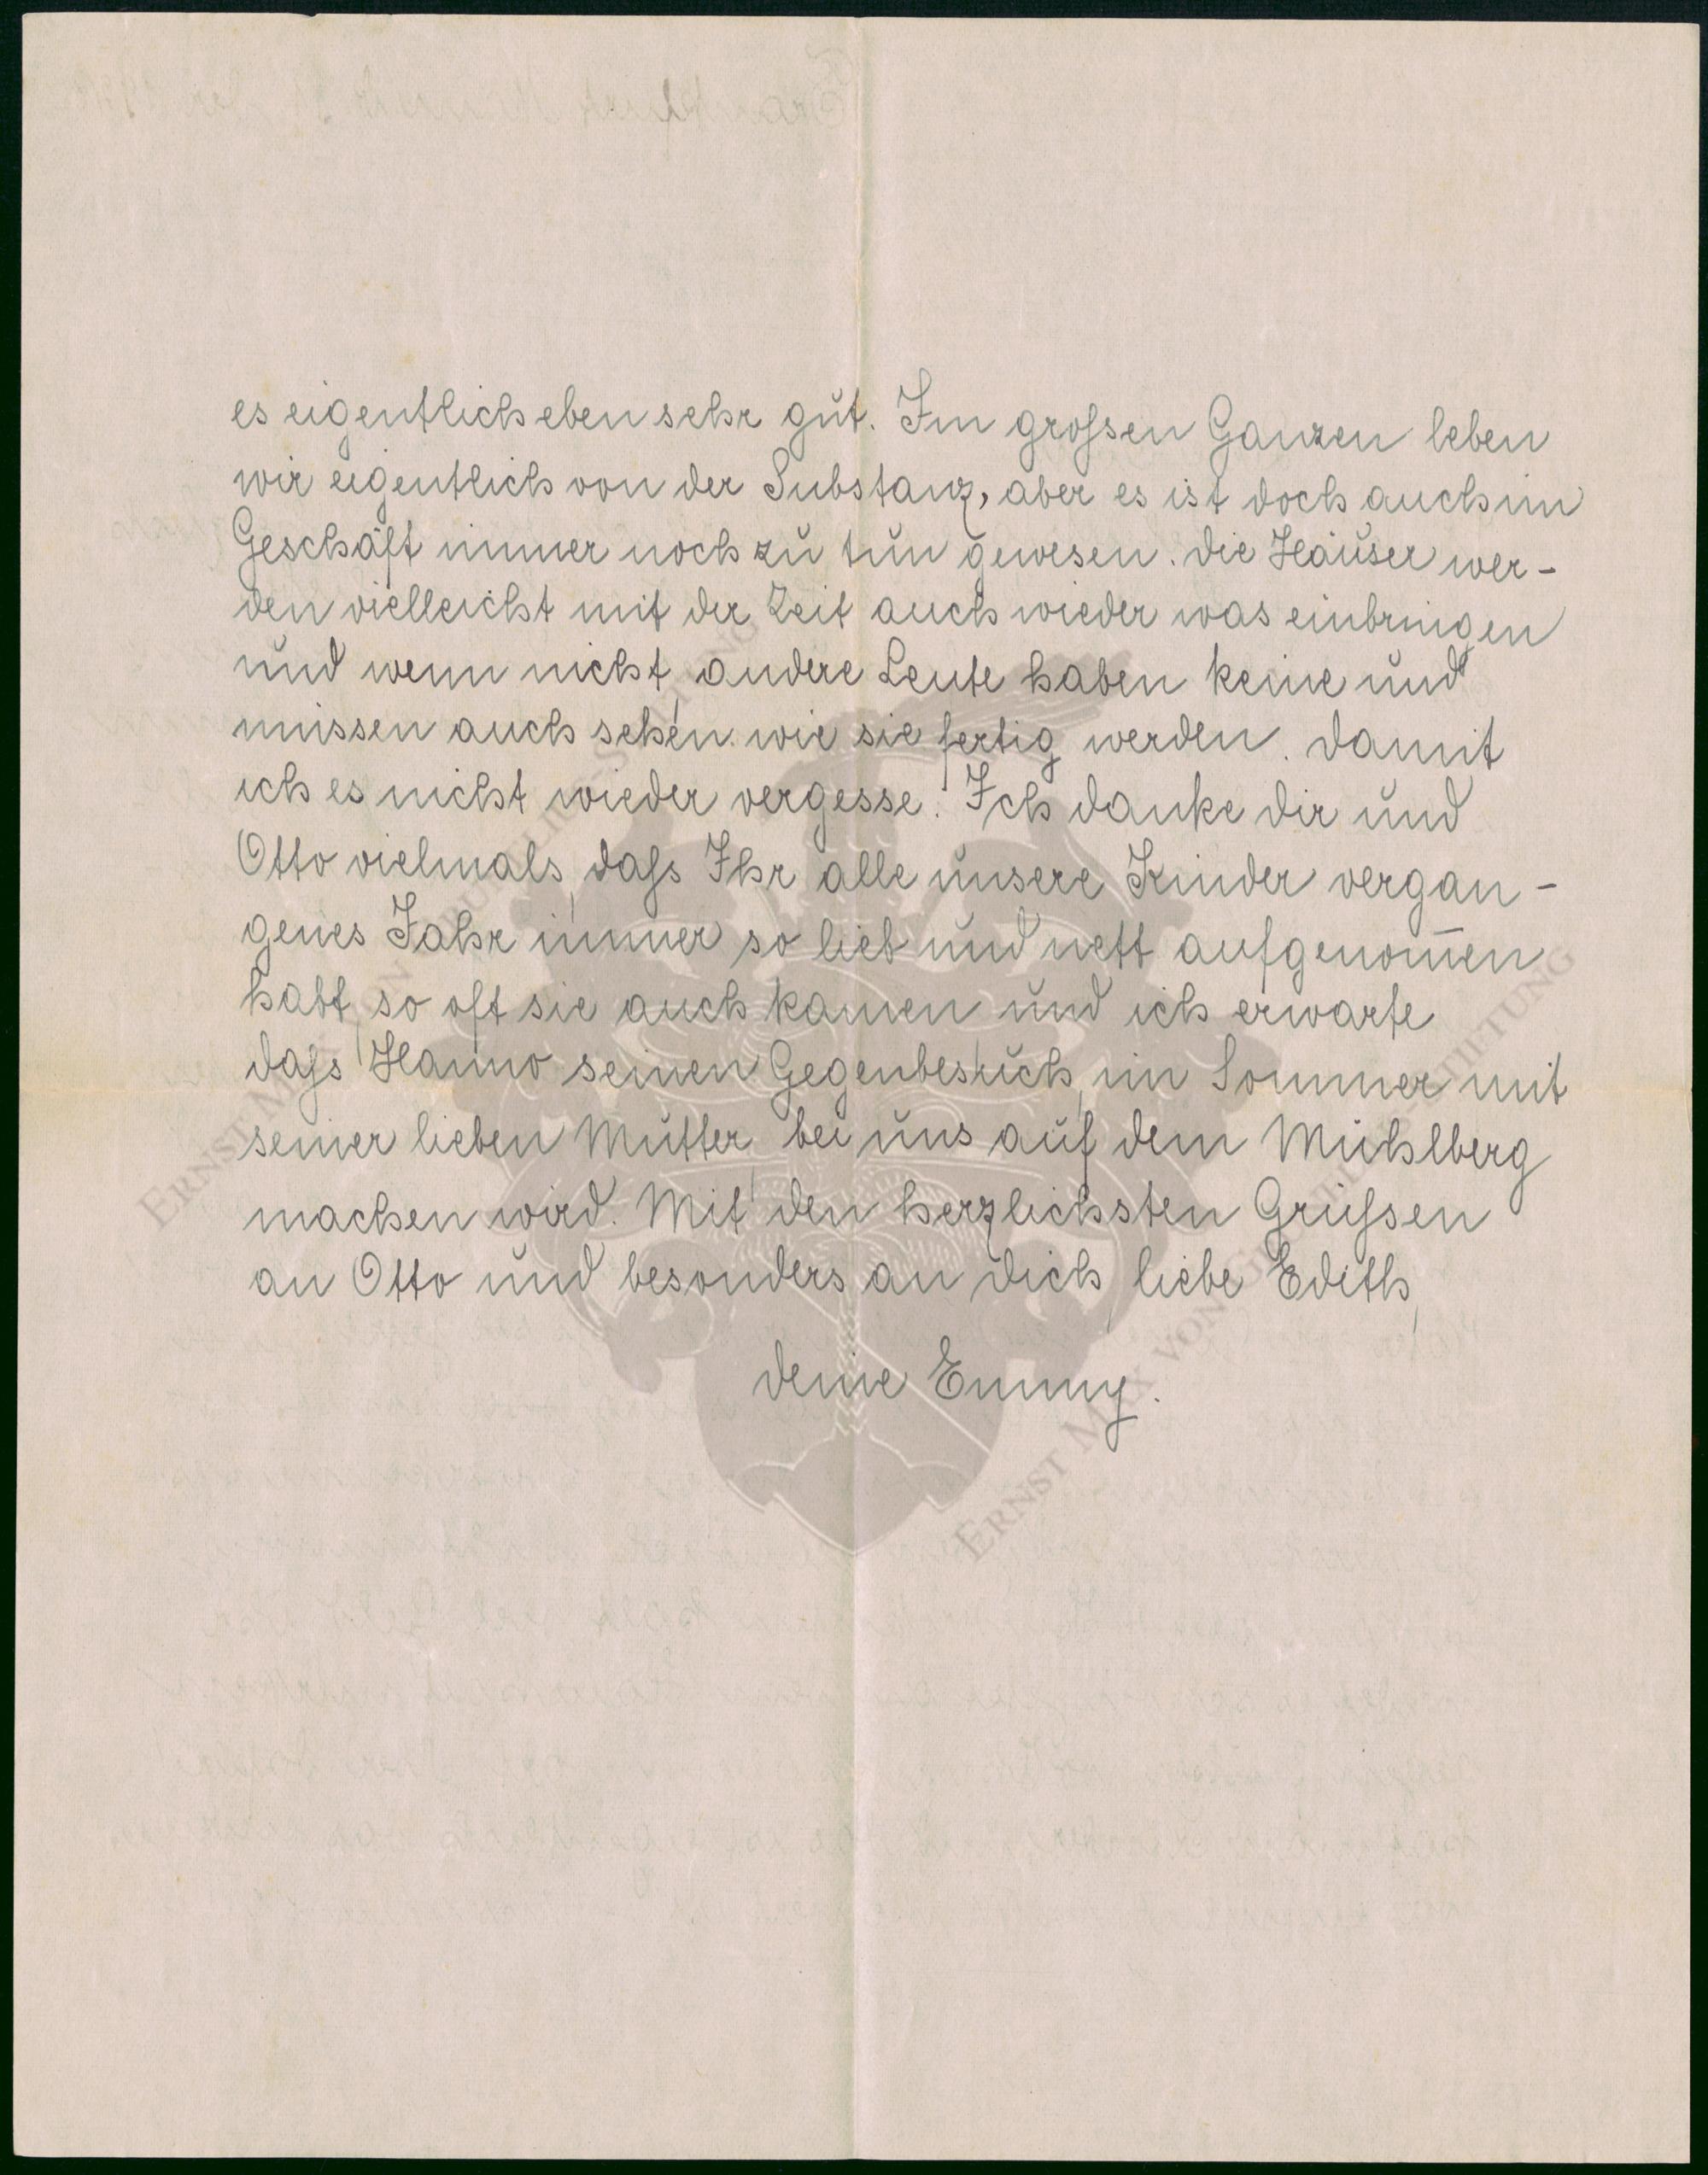 es eigentlich eben sehr gut. Im grossen Ganzen leben
wir eigentlich von der Substanz, aber es ist doch auch im
Geschäft immer noch zu tun gewesen. Die Häuser wer-
den vielleicht mit der Zeit auch wieder was einbringen
und wenn nicht, andere Leute haben keine und
müssen auch sehen wie sie fertig werden. Damit
ich es nicht wieder vergesse. Ich danke dir und
Otto vielmals, dass Ihr alle unsere Kinder vergan-
genes Jahr immer so lieb und nett aufgenom̅en
habt, so oft sie auch kamen und ich erwarte
dass Hanno seinen Gegenbesuch, im Sommer mit
seiner lieben Mutter, bei uns auf dem Mühlberg
machen wird. Mit den herzlichsten Grüssen
an Otto und besonders an dich, liebe Edith,
deine Emmy.
ERNST MAX VON GRUNELIUS-STIFTUNG
ERNST MAX VON GRUNELIUS-STIFTUNG